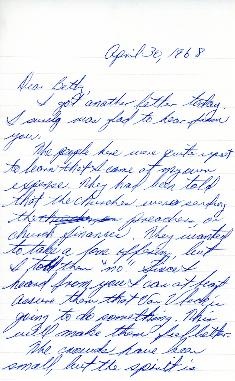 April 30, 1968
Dear Betty,
I got another letter today.
I surely was glad to hear from
you.
The people here were quite upset
to learn that I came at my own
expense. They had been told
that the churches were sending
the preachers on
church finances. They wanted
to take a love offering, but
I told them "no". Since I
heard from you I can at least
assure them that Van is
going to do something. This
will make them feel better.
The crowds have been
small, but the spirit is